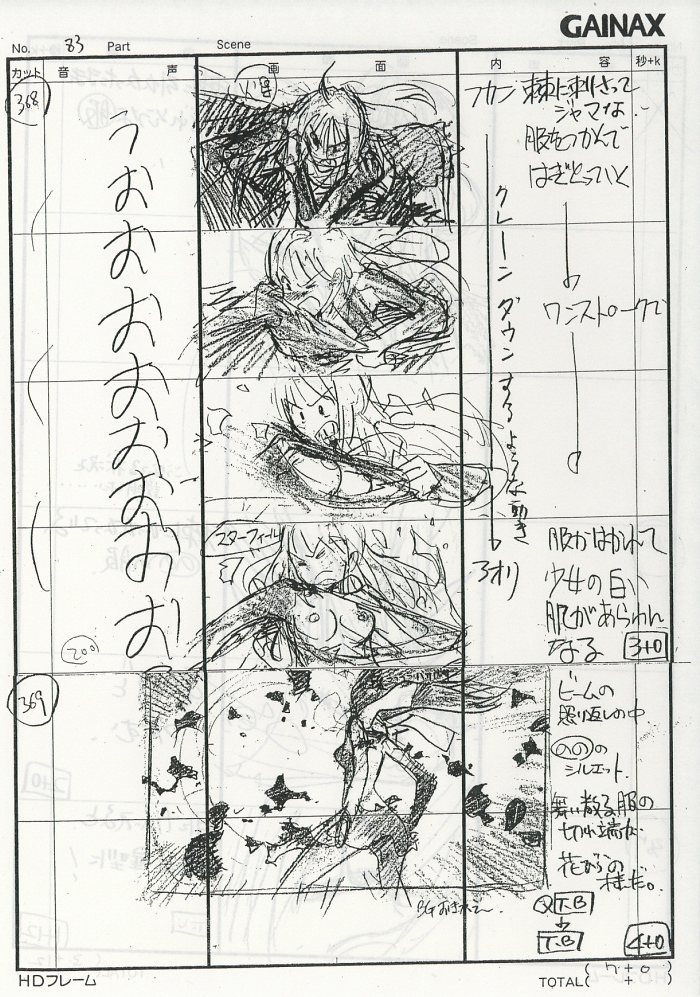 GAINAX
No. 83 Part Scene
カット 音 声 画 面 内 容 秒+k
368
うおおおおおおお
フカン
クレーンダウンするような動き
アオリ
棘に刺さって
ジャマな
服をつかんで
はぎとっていく
ワンストロークで
スターフィールド
服がはがれて
少女の白い
肌があらわに
なる
3+0
369
ビームの
照り返しの中
ののの
シルエット.
舞い散る服の
切れ端が
花びらの
様だ。
Q.T.B
T.B
4+0
HDフレーム
TOTAL( 7 + 0 )
( + )